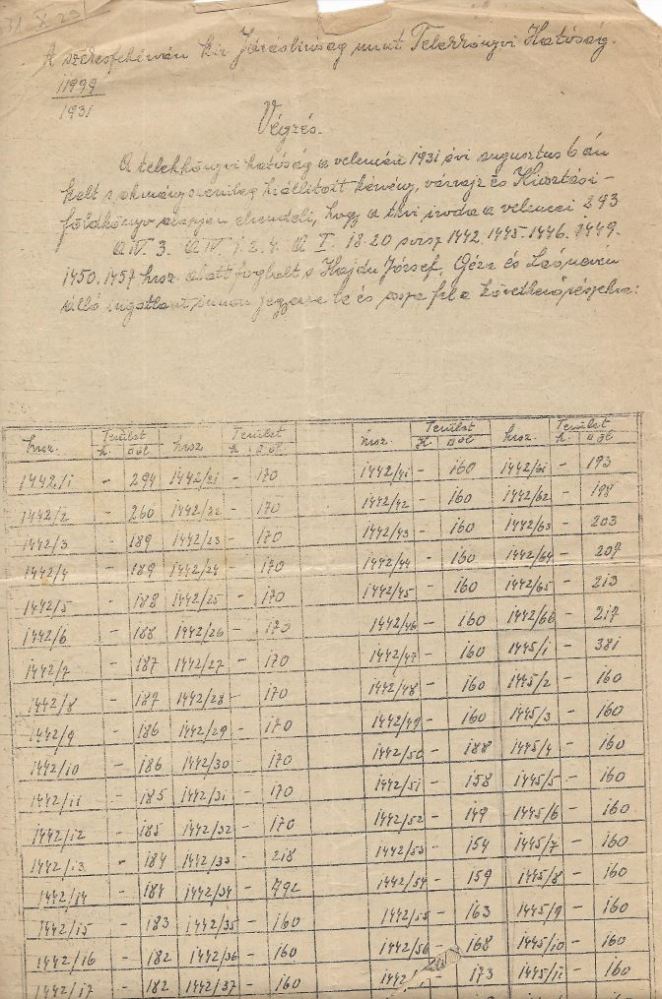 31. X. 29
A székesfehérvári kir. Járásbíróság mint Telekkönyvi Hatóság.
11999
1931
Végzés.
A telekkönyvi hatóság a velencén 1931 évi augusztus 6 án
kelt s okmányszerűleg kiállított kérvény, vázrajz és Kiosztási-
földkönyv alapján elrendeli, hogy a tkvi iroda a velencei 293
A IV. 3. A IV 1. 2. 4. A I. 18-20 sorsz 1442. 1445. 1446. 1449.
1450. 1457 hrsz. alatt foglalt s Hajdu József, Géza és nevén
álló ingatlant, jegyezze le és ossza fel a következő részekre:
hrsz. Terület hrsz Terület hrsz. Terület hrsz. Terület
h. □öl h. □öl h □öl h. □öl
1442/1 - 294 1442/21 - 170 1442/41 - 160 1442/61 - 193
1442/2 - 260 1442/22 - 170 1442/42 - 160 1442/62 - 198
1442/3 - 189 1442/23 - 170 1442/43 - 160 1442/63 - 203
1442/4 - 189 1442/24 - 170 1442/44 - 160 1442/64 - 207
1442/5 - 188 1442/25 - 170 1442/45 - 160 1442/65 - 213
1442/6 - 188 1442/26 - 170 1442/46 - 160 1442/66 - 217
1442/7 - 187 1442/27 - 170 1442/47 - 160 1445/1 - 381
1442/8 - 187 1442/28 - 170 1442/48 - 160 1445/2 - 160
1442/9 - 186 1442/29 - 170 1442/49 - 160 1445/3 - 160
1442/10 - 186 1442/30 - 170 1442/50 - 188 1445/4 - 160
1442/11 - 185 1442/31 - 170 1442/51 - 158 1445/5 - 160
1442/12 - 185 1442/32 - 170 1442/52 - 149 1445/6 - 160
1442/13 - 184 1442/33 - 218 1442/53 - 154 1445/7 - 160
1442/14 - 184 1442/34 - 792 1442/54 - 159 1445/8 - 160
1442/15 - 183 1442/35 - 160 1442/55 - 163 1445/9 - 160
1442/16 - 182 1442/36 - 160 1442/56 - 168 1445/10 - 160
1442/17 - 182 1442/37 - 160 1442/ - 173 1445/11 - 160